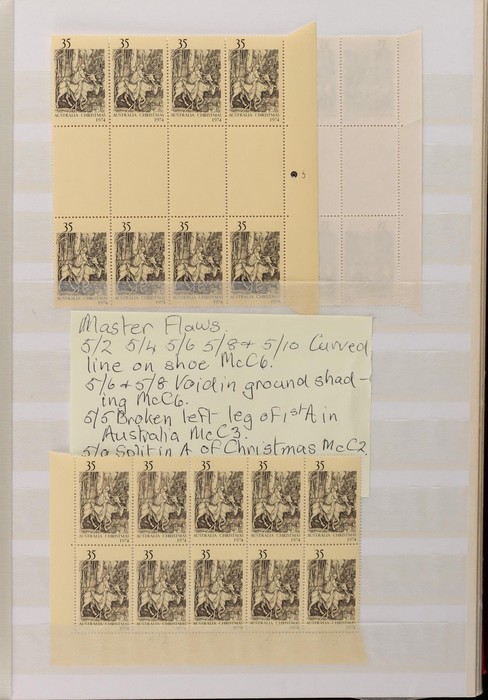 35 35 35 35
AUSTRALIA CHRISTMAS AUSTRALIA CHRISTMAS AUSTRALIA CHRISTMAS AUSTRALIA CHRISTMAS
1974 1974 1974 1974
35 35 35 35
Master Flaws.
5/2 5/4 5/6 5/8 & 5/10 Curved
line on shoe McC6.
5/6 & 5/8 Void in ground shad-
ing McC6.
5/5 Broken left leg of 1st A in
Australia McC3.
5/9 Split in A of Christmas McC2
35 35 35 35 35
AUSTRALIA CHRISTMAS AUSTRALIA CHRISTMAS AUSTRALIA CHRISTMAS AUSTRALIA CHRISTMAS AUSTRALIA CHRISTMAS
1974 1974 1974 1974 1974
35 35 35 35 35
AUSTRALIA CHRISTMAS AUSTRALIA CHRISTMAS AUSTRALIA CHRISTMAS AUSTRALIA CHRISTMAS AUSTRALIA CHRISTMAS
1974 1974 1974 1974 1974